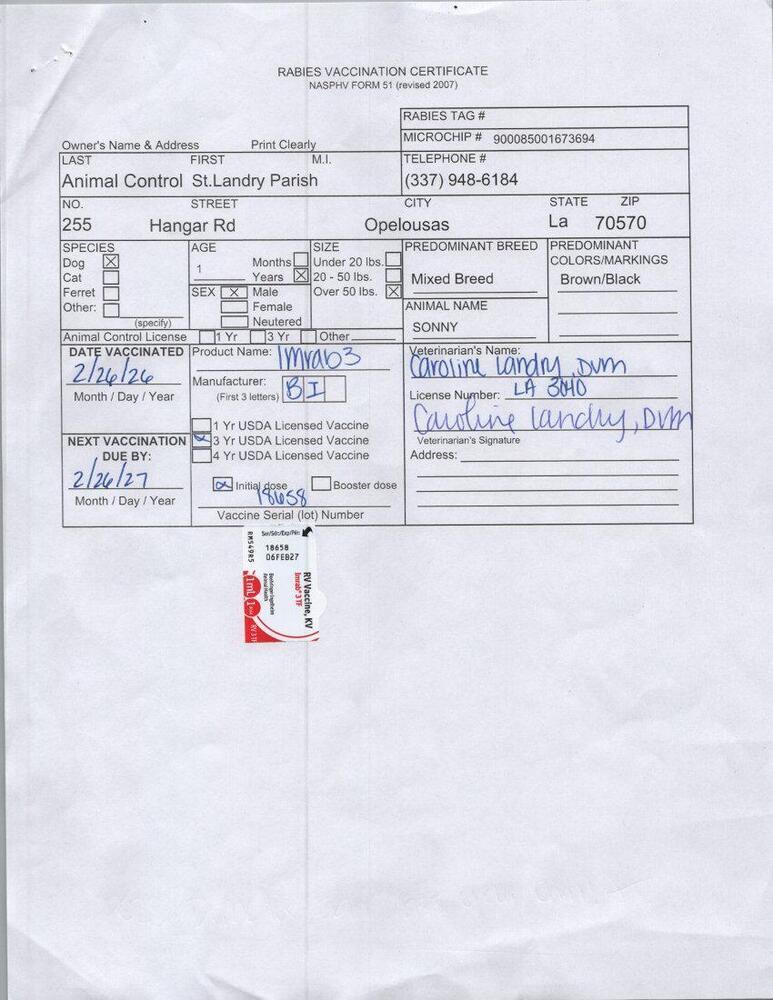 RABIES VACCINATION CERTIFICATE
NASPHV FORM 51 (revised 2007)
RABIES TAG #
MICROCHIP # 900085001673694
Owner's Name & Address Print Clearly
LAST FIRST M.I. TELEPHONE #
Animal Control St.Landry Parish (337) 948-6184
NO. STREET CITY STATE ZIP
255 Hangar Rd Opelousas La 70570
SPECIES AGE SIZE PREDOMINANT BREED PREDOMINANT
COLORS/MARKINGS
Dog X Months Under 20 lbs.
Cat 1 Years X 20 - 50 lbs. Mixed Breed Brown/Black
Ferret SEX X Male Over 50 lbs. X
Other: Female ANIMAL NAME
(specify) Neutered SONNY
Animal Control License 1 Yr 3 Yr Other
DATE VACCINATED Product Name: Imrab3 Veterinarian's Name:
2/26/26 Caroline Landry, DVM
Manufacturer: BI
Month / Day / Year (First 3 letters) License Number: LA 3140
1 Yr USDA Licensed Vaccine Caroline Landry, DVM
NEXT VACCINATION 3 Yr USDA Licensed Vaccine Veterinarian's Signature
DUE BY: 4 Yr USDA Licensed Vaccine Address:
2/26/27
Initial dose Booster dose
Month / Day / Year 18658
Vaccine Serial (lot) Number
Ser/Sér/Exp/Pér:
18658
06FEB27
RM549R5
RV Vaccine, KV
Imrab® 3 TF
Boehringer Ingelheim
Animal Health
1 mL 1
RV 3 TF